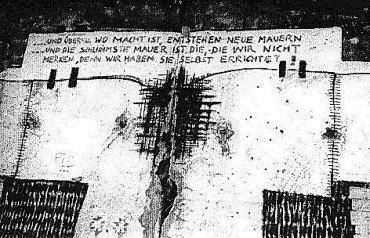 ...UND ÜBERALL WO MACHT IST, ENTSTEHEN NEUE MAUERN
...UND DIE SCHLIMMSTE MAUER IST DIE, DIE WIR NICHT
MERKEN, DENN WIR HABEN SIE SELBST ERRICHTET!